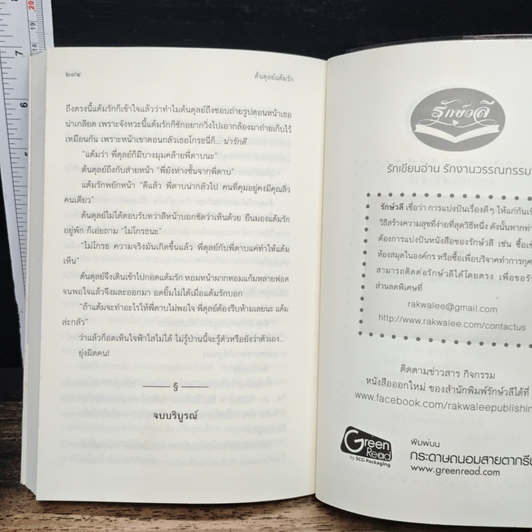 ๒๗๔
ต้นตุลย์แต้มรัก
ถึงตรงนี้แต้มรักก็เข้าใจแล้วว่าทำไมต้นตุลย์ถึงชอบถ่ายรูปตอนหน้าเธอ
น่าเกลียด เพราะจังหวะนี้แต้มรักก็ชักอยากวิ่งไปเอากล้องมาถ่ายเก็บไว้
เหมือนกัน เพราะหน้าเขาตอนกลัวเธอโกรธนี่ก็... น่ารักดี
"แต้มว่า พี่ตุลย์ก็มีบางมุมคล้ายพี่ดาบนะ"
ต้นตุลย์ถึงกับส่ายหน้า "พี่ยังห่างชั้นจากพี่ดาบ"
แต้มรักพยักหน้า "ดีแล้ว พี่ดาบน่ากลัวไป คนที่คุมอยู่คงมีคุณสิว
คนเดียว"
ต้นตุลย์ไม่ได้ตอบรับทว่าสีหน้าบอกชัดว่าเห็นด้วย ยืนมองแต้มรัก
อยู่พัก ก็เอ่ยถาม "ไม่โกรธนะ"
"ไม่โกรธ ความจริงมันเกิดขึ้นแล้ว พี่ตุลย์กับพี่ดาบแค่ทำให้แต้ม
เห็น"
ต้นตุลย์จึงเดินเข้าไปกอดแต้มรัก หอมหน้าผากหอมแก้มหลายฟอด
จนพอใจแล้วจึงผละออกมา อดยิ้มไม่ได้เมื่อแต้มรักบอก
"ถ้าแต้มจะทำอะไรให้พี่ดาบไม่พอใจ พี่ตุลย์ต้องรีบห้ามเลยนะ แต้ม
ล่ะกลัว"
ว่าแล้วก็อดเห็นใจฟ้าใสไม่ได้ ไม่รู้ป่านนี้จะรู้ตัวหรือยังว่าตัวเอง...
ยุ่งผิดคน!
§
จบบริบูรณ์
รักษ์วลี
รักเขียนอ่าน รักงานวรรณกรรม
รักษ์วลี เชื่อว่า การแบ่งปันเรื่องดีๆ ให้แก่กันเป็น
วิธีสร้างความสุขที่ง่ายที่สุดวิธีหนึ่ง ดังนั้นหากท่าน
ต้องการแบ่งปันหนังสือของรักษ์วลี เช่น ซื้อเข้า
ห้องสมุดในองค์กร หรือซื้อเพื่อบริจาคทำการกุศล
สามารถติดต่อรักษ์วลีได้โดยตรง เพื่อขอรับ
ส่วนลดพิเศษที่
rakwalee@gmail.com
http://www.rakwalee.com/contactus
ติดตามข่าวสาร กิจกรรม
หนังสือออกใหม่ ของสำนักพิมพ์รักษ์วลีได้ที่
www.facebook.com/rakwaleepublishin
Green
Read
by SCG Packaging
พิมพ์บน
กระดาษถนอมสายตากรีน
www.greenread.com